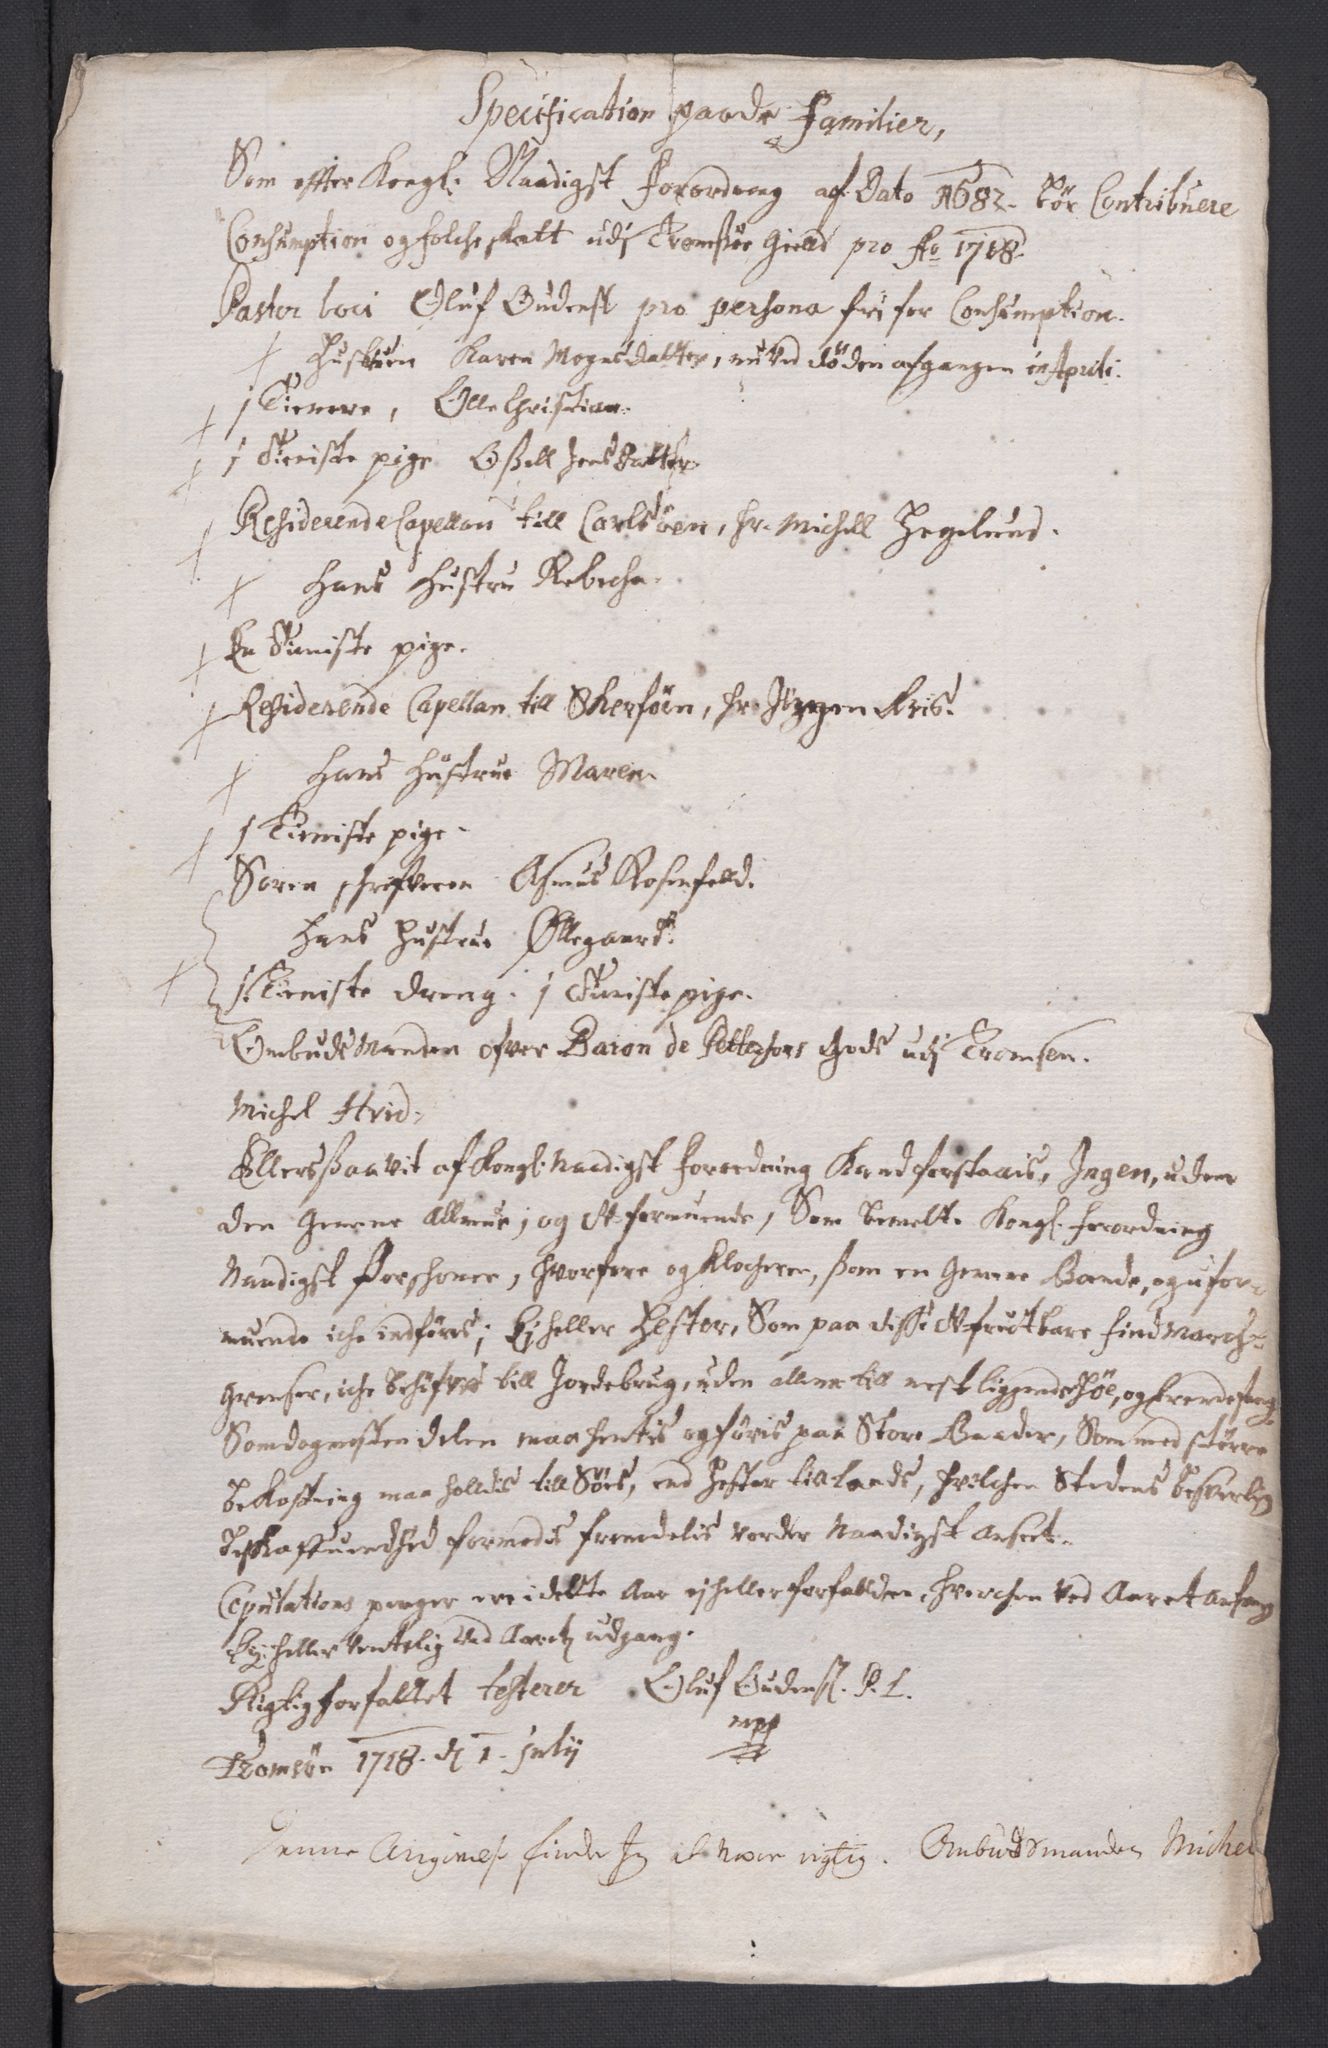 Specification paa de Familier,
Som effter Kongl: Naadigst Forordning af Dato 1682. bör Contribuere
Consumption og folcheskatt udj Tromsöe Gield pro Ao 1718.
Pastor loci Oluf Gudensl pro persona fri for Consumption.
+ Hustruen Karen Mognsdatter, nu ved döden afgangen in Aprili.
+ 1 Tienere, Olle Christian.
+ 1 Tieniste pige Oßell Jensdatter
+ Residerende Capellan till Carlsöen, hr. Michell Hegelund.
+ Hans Hustru Rebecha.
+ En Tieniste pige.
+ Residerende Capellan till Skerföen, hr. Jörgen Friis.
+ Hans Hustrue Maren.
+ 1 Tieniste pige.
Soren schrifveren Asmus Rosenfeld.
Hans Hustrue Øllegaard.
+ 1 Tieniste dreng. 1 Tieniste pige.
Ombudsmanden ofver Baron de Pettersens Gods udj Tromsen.
Michel Hvid.
Ellers saavit af Kongl: Naadigst forordning Kand forstaais, Ingen, uden
den Gemene Allmue, og Uformuende, Som bemelte Kongl. forordning
Naadigst forschoner, hvorfore og Klocheren, som en Gemene Bonde, og ufor-
muende iche indföres; Ej heller Hester, Som paa disse Ufrugtbare Findmarch-
Grenser, iche behöfves till Jordebrug, uden allene till nest liggende Höe, og brendefang,
Som dog mesten delen maa hentes og föris paa Store Baader, Som med större
bekostning maa holldis till Söes, end Hester till lands, hvilchen Stedens besverlig
beskaffuenhed formodis fremdelis vorder Naadigst anseet.
Copulations penger ere i dette Aar ej heller forfalden, hverchen ved Aaret anfang
Ey heller ventelig ved Aarets udgang.
Rigtig forfattet testerer Oluf Gudensl. P. L.
mpp
Tromsöe 1718. d. 1. July
Denne Angivelse finder Jeg at være rigtig. Ombudsmanden Michel